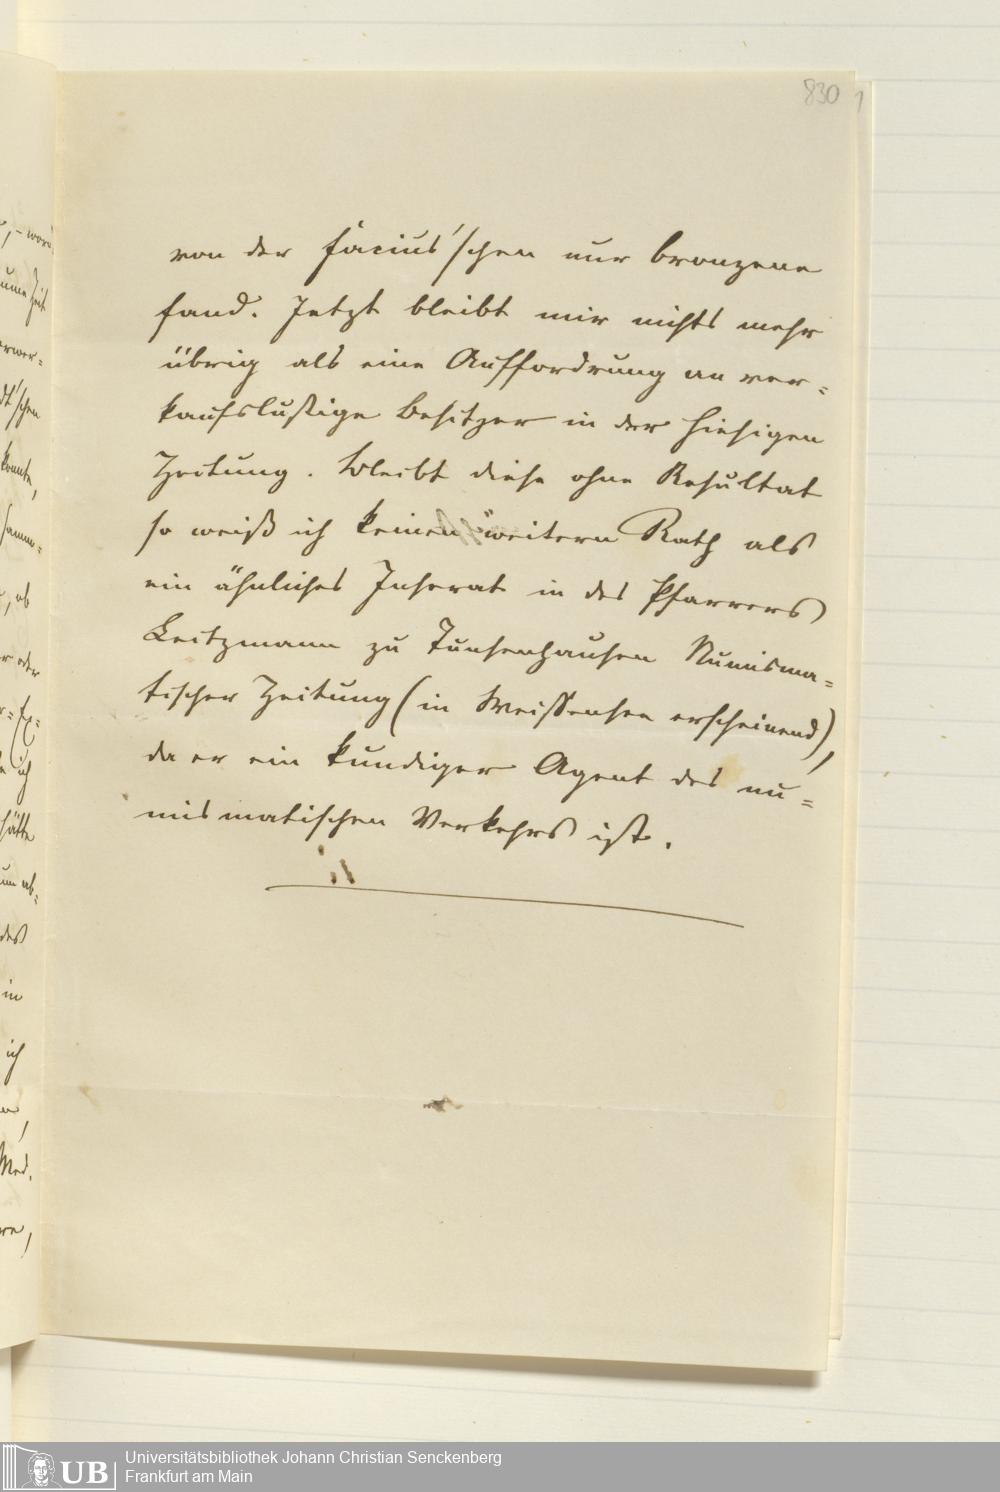 830
1
von der Facius'schen nur bronzene
fand. Jetzt bleibt mir nichts mehr
übrig als eine Auffordrung an ver=
kaufslustige Besitzer in der hiesigen
Zeitung. Bleibt diese ohne Resultat
so weiß ich keinen weitern Rath als
ein ähnliches Inserat in des Pfarrers
Leitzmann zu Tunsenhausen Numisma=
tischer Zeitung (in Weissensee erscheinend),
da er ein kundiger Agent des nu=
mismatischen Verkehrs ist.
erwer=
dt'schen
konnte,
, ob
r oder
ich
hätte
um ab=
des
in
ich
Med.
UB
Universitätsbibliothek Johann Christian Senckenberg
Frankfurt am Main